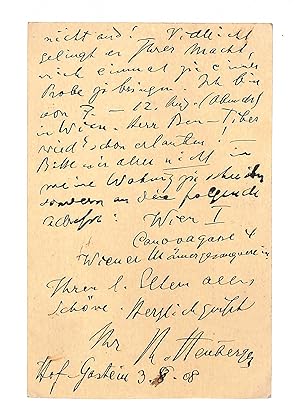 nicht aus! Vielleicht
gelingt es Ihrer Macht,
mich einmal zu einer
Probe zu bringen. Ich bin
von 7. – 12. Aug. (Abends)
in Wien. Herr Ben-Tiber
wird schon erlauben! –
Bitte mir aber nicht in
meine Wohnung zu schreiben
sondern an die folgende
Adresse: Wien I
Canovagasse 4
Wiener Männergesangverein
Ihren l. Eltern alles
Schöne. Herzlich grüßt
Ihr
Hof-Gastein 3. 8. 08